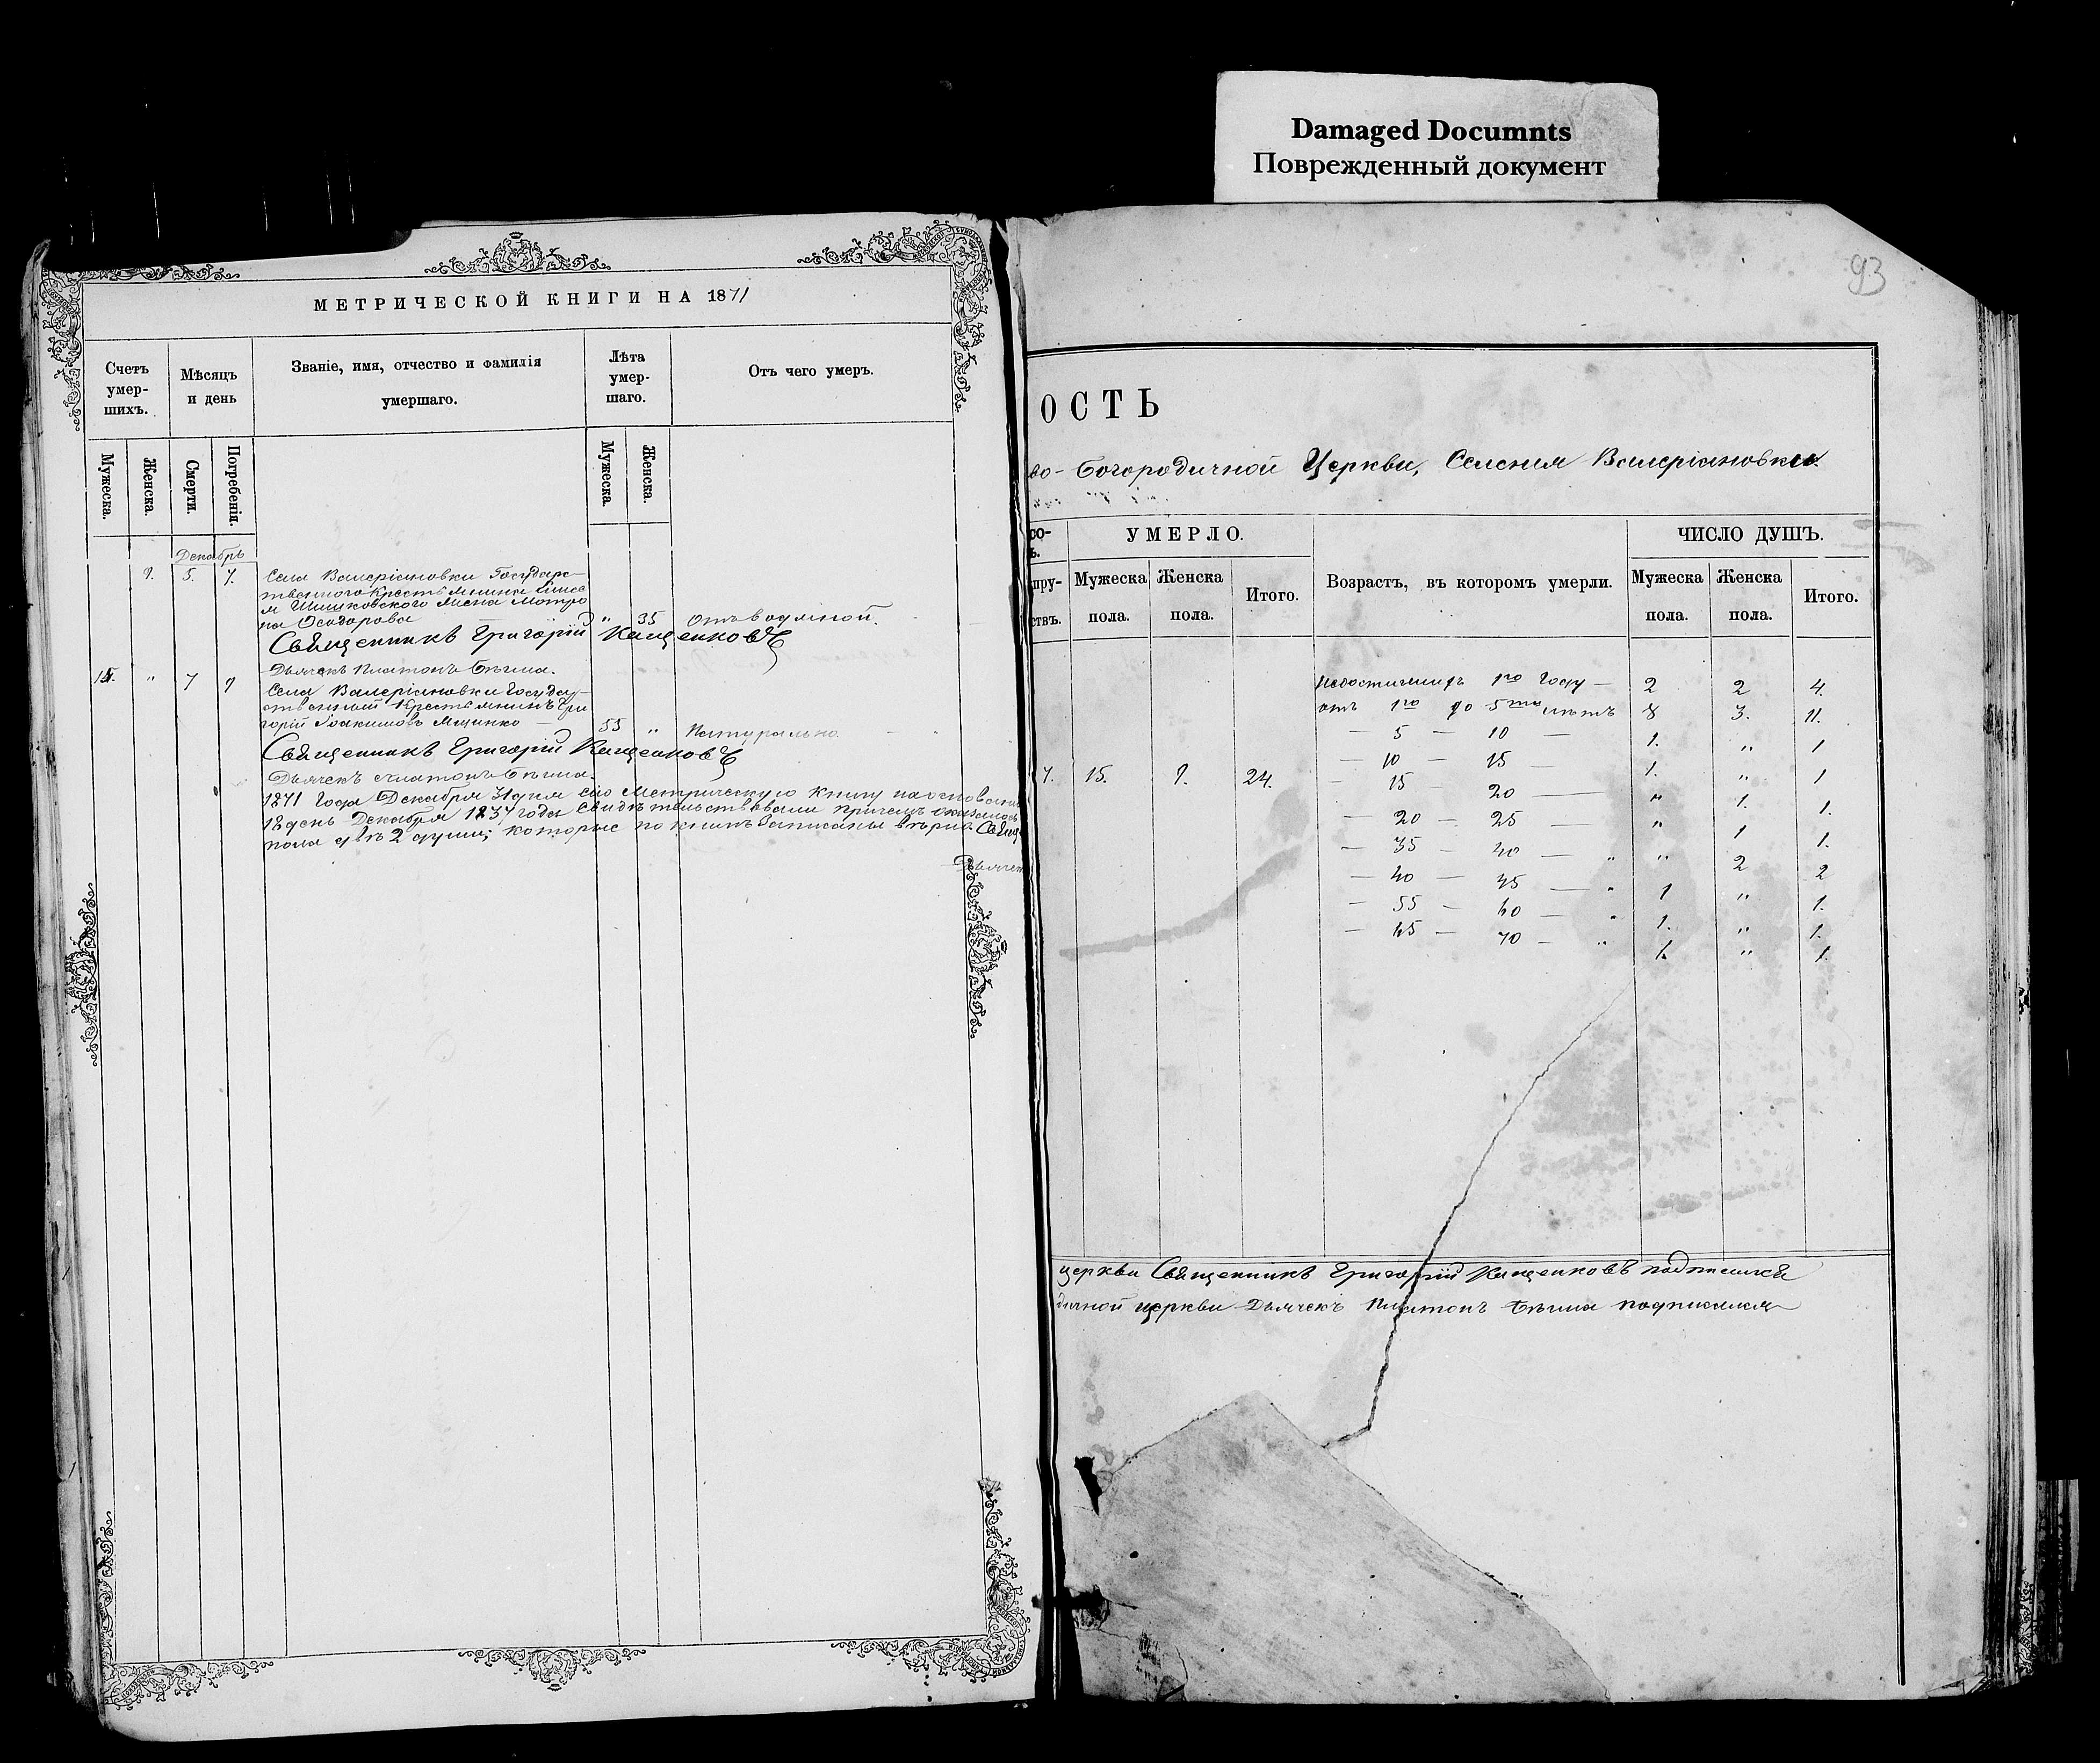 Damaged Documnts
Поврежденный документ
93
МЕТРИЧЕСКОЙ КНИГИ НА 1871
Счетъ умер-шихъ.
Мѣсяцъ и день
Званіе, имя, отчество и фамилія умершаго.
Лѣта умер-шаго.
Отъ чего умеръ.
Мужеска.
Женска.
Смерти.
Погребенія.
Мужеска
Женска.
Декабрь
9. 5. 7. Села Валеріановки Государс-
твеннаго крестьянина
Шишковского жена Мотро
на Ѳеодорова " 35 отъ водяной.
Священникъ Григорій Кащенковъ
Дьячекъ Платонъ
15. " 7 9 Села Валеріановки Государ-
ственный крестьянинъ Гри
горій Іоакимовъ Мщенко 55 " Натурально.
Священникъ Григорій Кащенковъ
Дьячекъ Платонъ
1871 года Декабря 31 дня сію Метрическую книгу на основаніи
18 день Декабря 1837 года свидѣтельствовали причемъ оказалось
пола двѣ 2 души; которые по книгѣ записаны вѣрно. Свящ
Дьячек
ОСТЬ
во-Богородичной Церкви, Селенія Валеріановки.
со-
ъ.
УМЕРЛО.
Возрастъ, въ которомъ умерли.
ЧИСЛО ДУШЪ.
пру-
ствъ.
Мужеска пола.
Женска пола.
Итого.
Мужеска пола.
Женска пола.
Итого.
Недостигшихъ 1го году — 2 2 4.
отъ 1го до 5ти лѣтъ 8 3. 11.
— 5 — 10 — 1. " 1
— 10 — 15 — 1. " 1
7. 15. 9. 24.
— 15 — 20 — " 1. 1.
— 20 — 25 — " 1 1.
— 35 — 40 — " " 2 2
— 40 — 45 — " 1 " 1.
— 55 — 60 — " 1. " 1.
— 65 — 70 — " 1. " 1.
церкви Священникъ Григорій Кащенковъ подписался
дичной церкви Дьячекъ Платонъ подписался